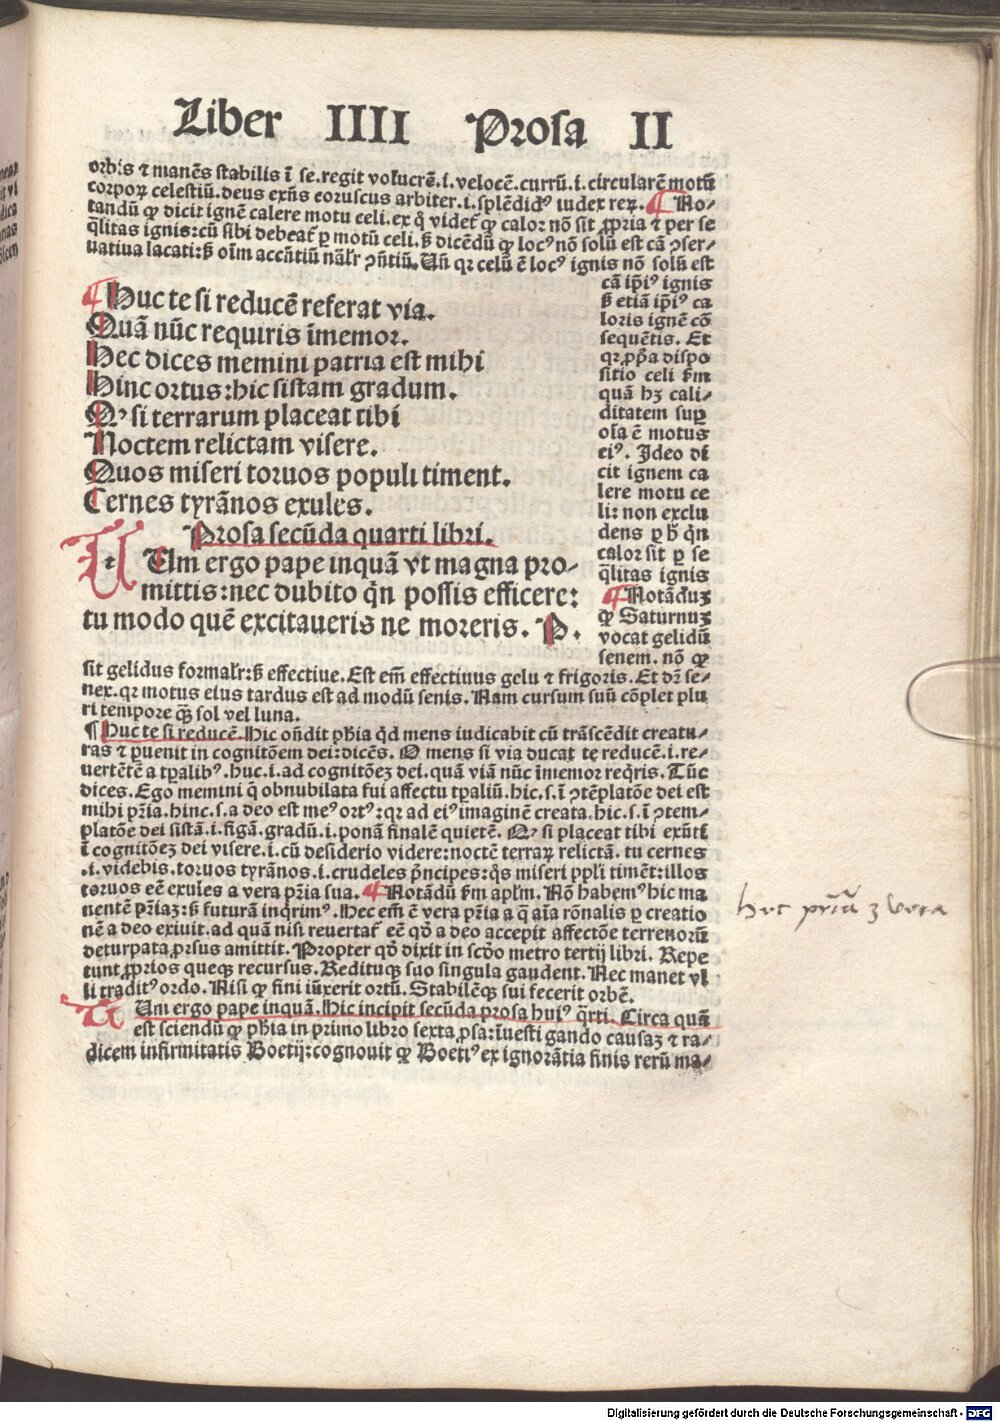 Liber IIII Prosa II
orbis ⁊ manēs stabilis ī se.regit volucrē.i.velocē.currū.i.circularē motū
corporꝝ celestiū.deus exn̄s coruscus arbiter.i.splēdidꝰ iudex reꝝ. ¶ No⸗
tandū ꝙ dicit ignē calere motu celi.ex q̇ videt᷑ ꝙ calor nō sit ꝓpria ⁊ per se
q̄litas ignis:cū sibi debeat᷑ ꝑ motū celi.ß dicēdū ꝙ locꝰ nō solū est cā ꝯser⸗
uatiua locati:ß oīm accn̄tiū nāl'r ꝯn̄tiū.Un̄ qꝛ celū ē locꝰ ignis nō solū est
cā ip̄iꝰ ignis
ß etiā ip̄iꝰ ca
loris ignē cō
sequētis. Et
qꝛ ꝓp̄a dispo
sitio celi ẜm
quā hꝫ cali⸗
ditatem suꝑ
oīa ē motus
eiꝰ. Ideo di
cit ignem ca
lere motu ce
li: non exclu
dens ꝑ h̄ q̄n
calor sit ꝑ se
q̄litas ignis
¶ Notādūꝫ
ꝙ Saturnuꝫ
vocat gelidū
senem. nō ꝙ
¶ Huc te si reducē referat via.
Quā nūc requiris īmemor.
Hec dices memini patria est mihi
Hinc ortus:hic sistam gradum.
Qꝰ si terrarum placeat tibi
Noctem relictam visere.
Quos miseri toruos populi timent.
Cernes tyrānos exules.
Prosa secūda quarti libri.
T Um ergo pape inquā vt magna pro⸗
mittis:nec dubito q̄n possis efficere:
tu modo quē excitaueris ne moreris. P.
sit gelidus formal'r:ß effectiue.Est em̄ effectiuus gelu ⁊ frigoris. Et dr̄ se⸗
nex.qꝛ motus eius tardus est ad modū senis. Nam cursum suū cōplet plu
ri tempore qꝫ sol vel luna.
¶ Huc te si reducē.Hic on̄dit ph̄ia q̇d mens iudicabit cū trāscēdit creatu⸗
ras ⁊ ꝑuenit in cognitōem dei:dicēs. O mens si via ducat te reducē.i.re⸗
uertētē a tꝑalibꝰ.huc.i.ad cognitōeꝫ dei.quā viā nūc īmemor reqͥris. Tūc
dices. Ego memini q̇ obnubilata fui affectu tꝑaliū.hic.s.ī ꝯtēplatōe dei est
mihi pr̄ia.hinc.s.a deo est meꝰ ortꝰ:qꝛ ad eiꝰ imaginē creata.hic.s.ī ꝯtem⸗
platōe dei sistā.i.figā.gradū.i.ponā finalē quietē. Qꝰ si placeat tibi exūti
ī cognitōeꝫ dei visere.i.cū desiderio videre:noctē terraꝝ relictā. tu cernes
.i.videbis.toruos tyrānos.i.crudeles pͥncipes:q̇s miseri pp̄li timēt:illos
toruos eē exules a vera pr̄ia sua. ¶ Notādū ẜm apl'm. Nō habemꝰ hic ma
nentē pr̄iaꝫ:ß futurā inqͥrimꝰ. Hec em̄ ē vera pr̄ia a q̄ aīa rōnalis ꝑ creatio
nē a deo exiuit.ad quā nisi reuertat᷑ eē qḋ a deo accepit affectōe terrenorū
deturpata ꝓrsus amittit. Propter qḋ dixit in scḋo metro tertij libri. Repe
tunt ꝓprios queqꝫ recursus. Redituqꝫ suo singula gaudent. Nec manet vl
li traditꝰ ordo. Nisi ꝙ fini iūxerit ortū. Stabilēqꝫ sui fecerit orbē.
T Um ergo pape inquā. Hic incipit secūda prosa huiꝰ q̄rti. Circa quā
est sciendū ꝙ ph̄ia in primo libro sexta ꝓsa:īuesti gando causaꝫ ⁊ ra⸗
dicem infirmitatis Boetij:cognouit ꝙ Boetiꝰ ex ignorātia finis rerū ma⸗
hec pr̄ia ꝫ vera
Digitalisierung gefördert durch die Deutsche Forschungsgemeinschaft - DFG